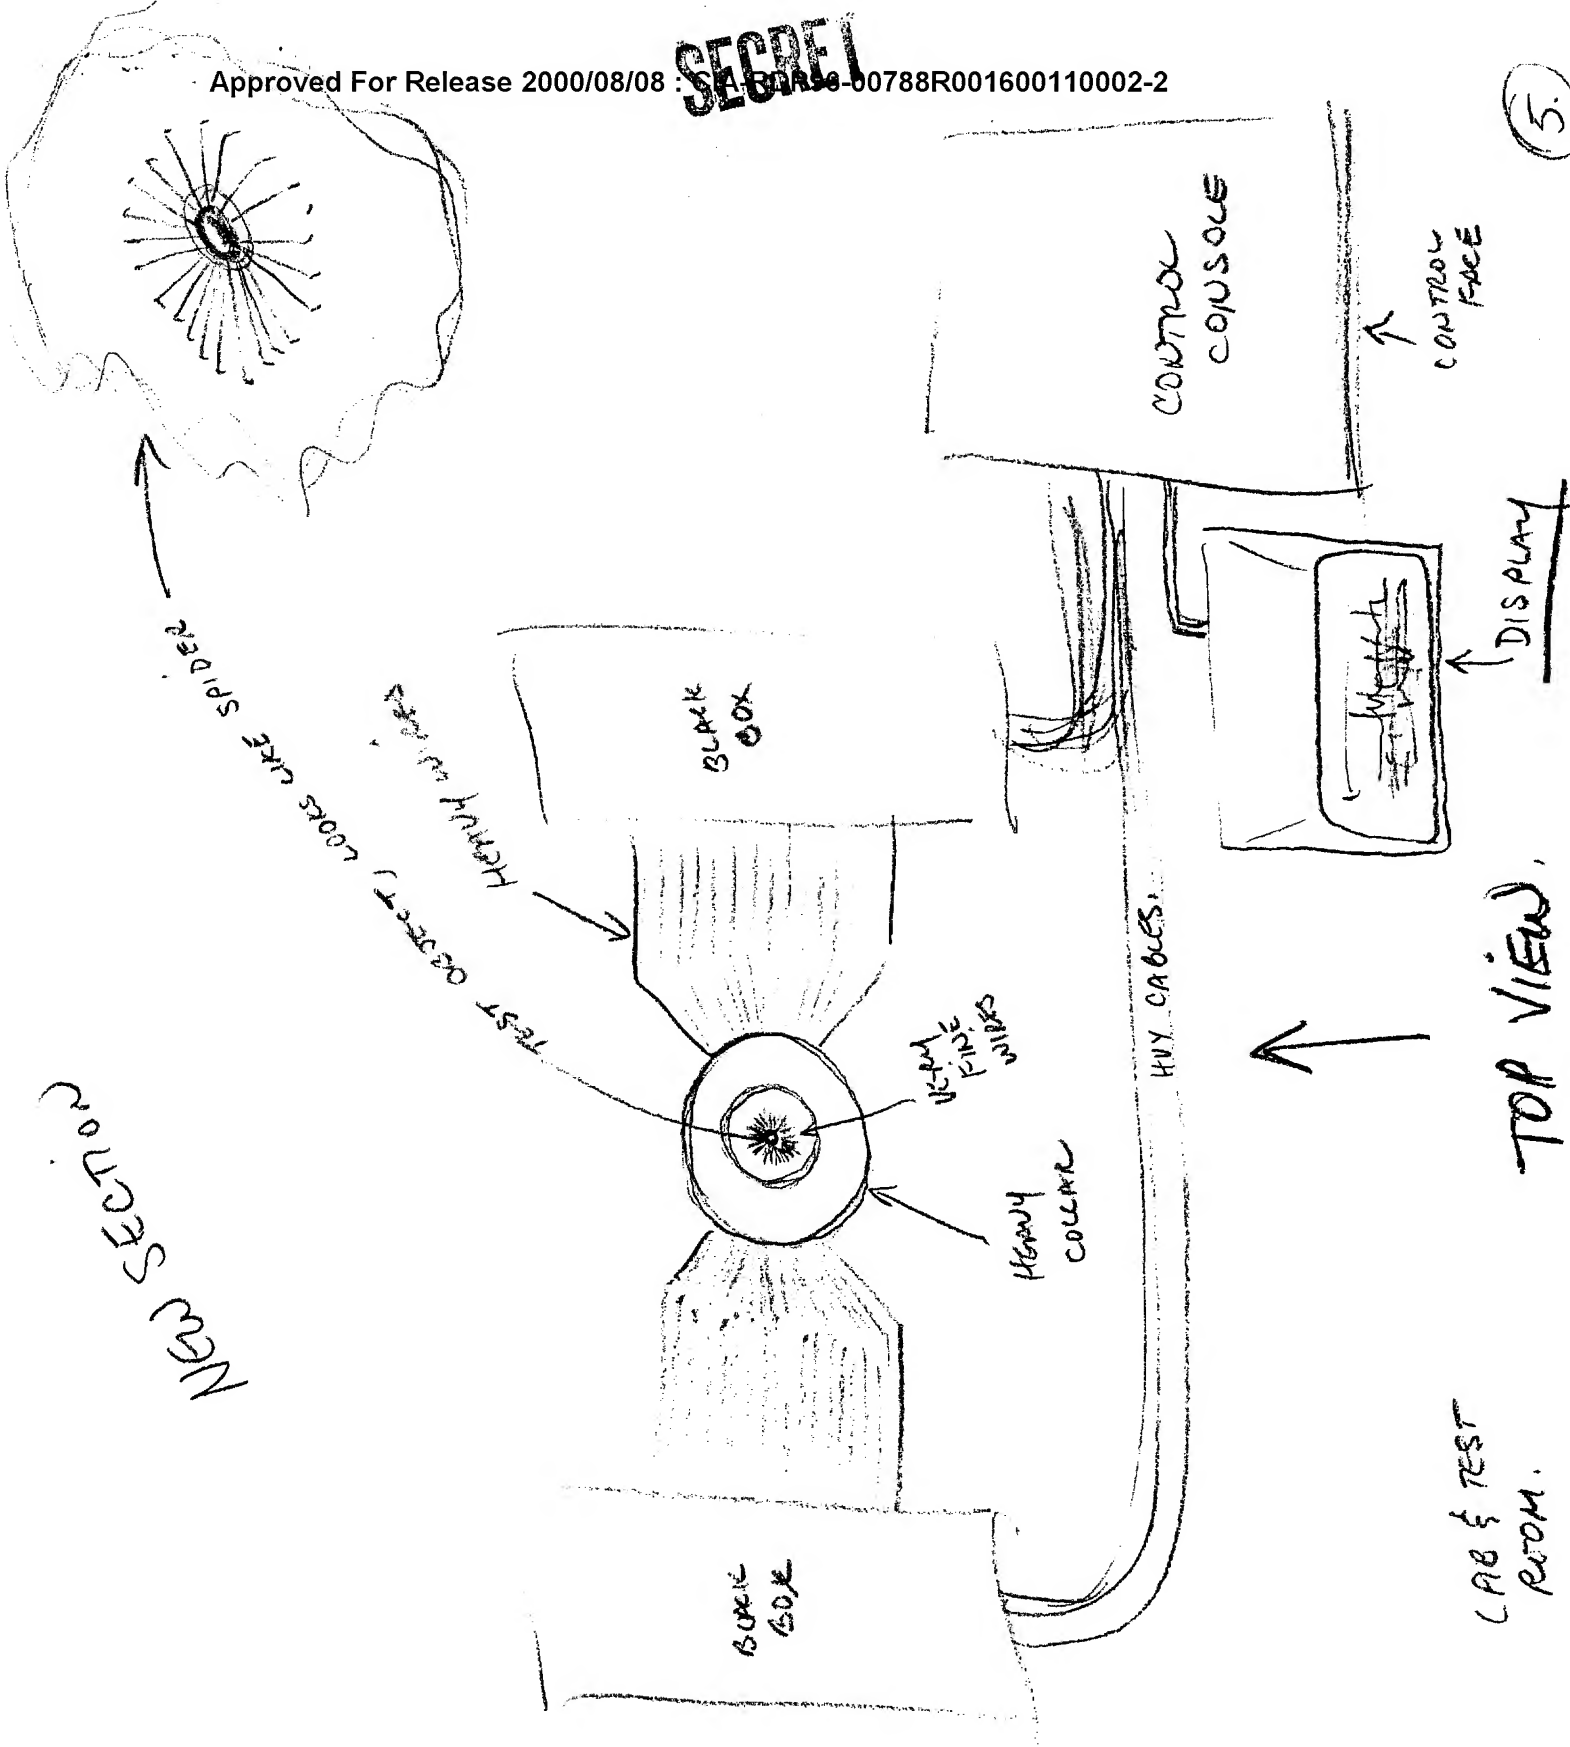 SECRET
Approved For Release 2000/08/08 : CIA-RDP96-00788R001600110002-2
5.
NEW SECTION
TEST OBJECT, LOOKS LIKE SPIDER
HEAVY WIRES
BLACK
BOX
VERY
FINE
WIRES
HEAVY
COLLAR
BLACK
BOX
HVY CABLES.
CONTROL
CONSOLE
CONTROL
FACE
DISPLAY
TOP VIEW.
LAB & TEST
ROOM.